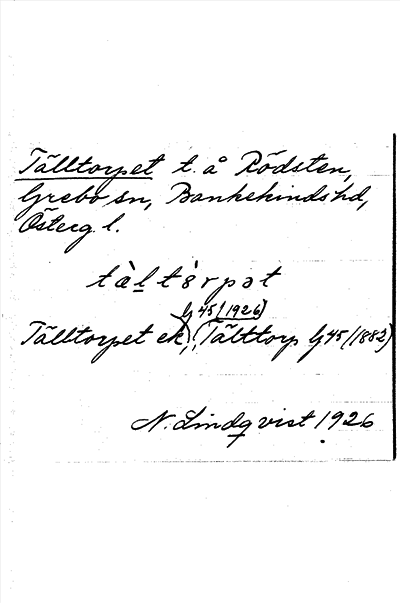 Tälltorpet t. å Rödsten,
Grebo sn, Bankekinds hd,
Österg. l.
tàltòrpət
G45 (1926)
Tälltorpet ek), (Tälttorp G45 (1882)
N. Lindqvist 1926